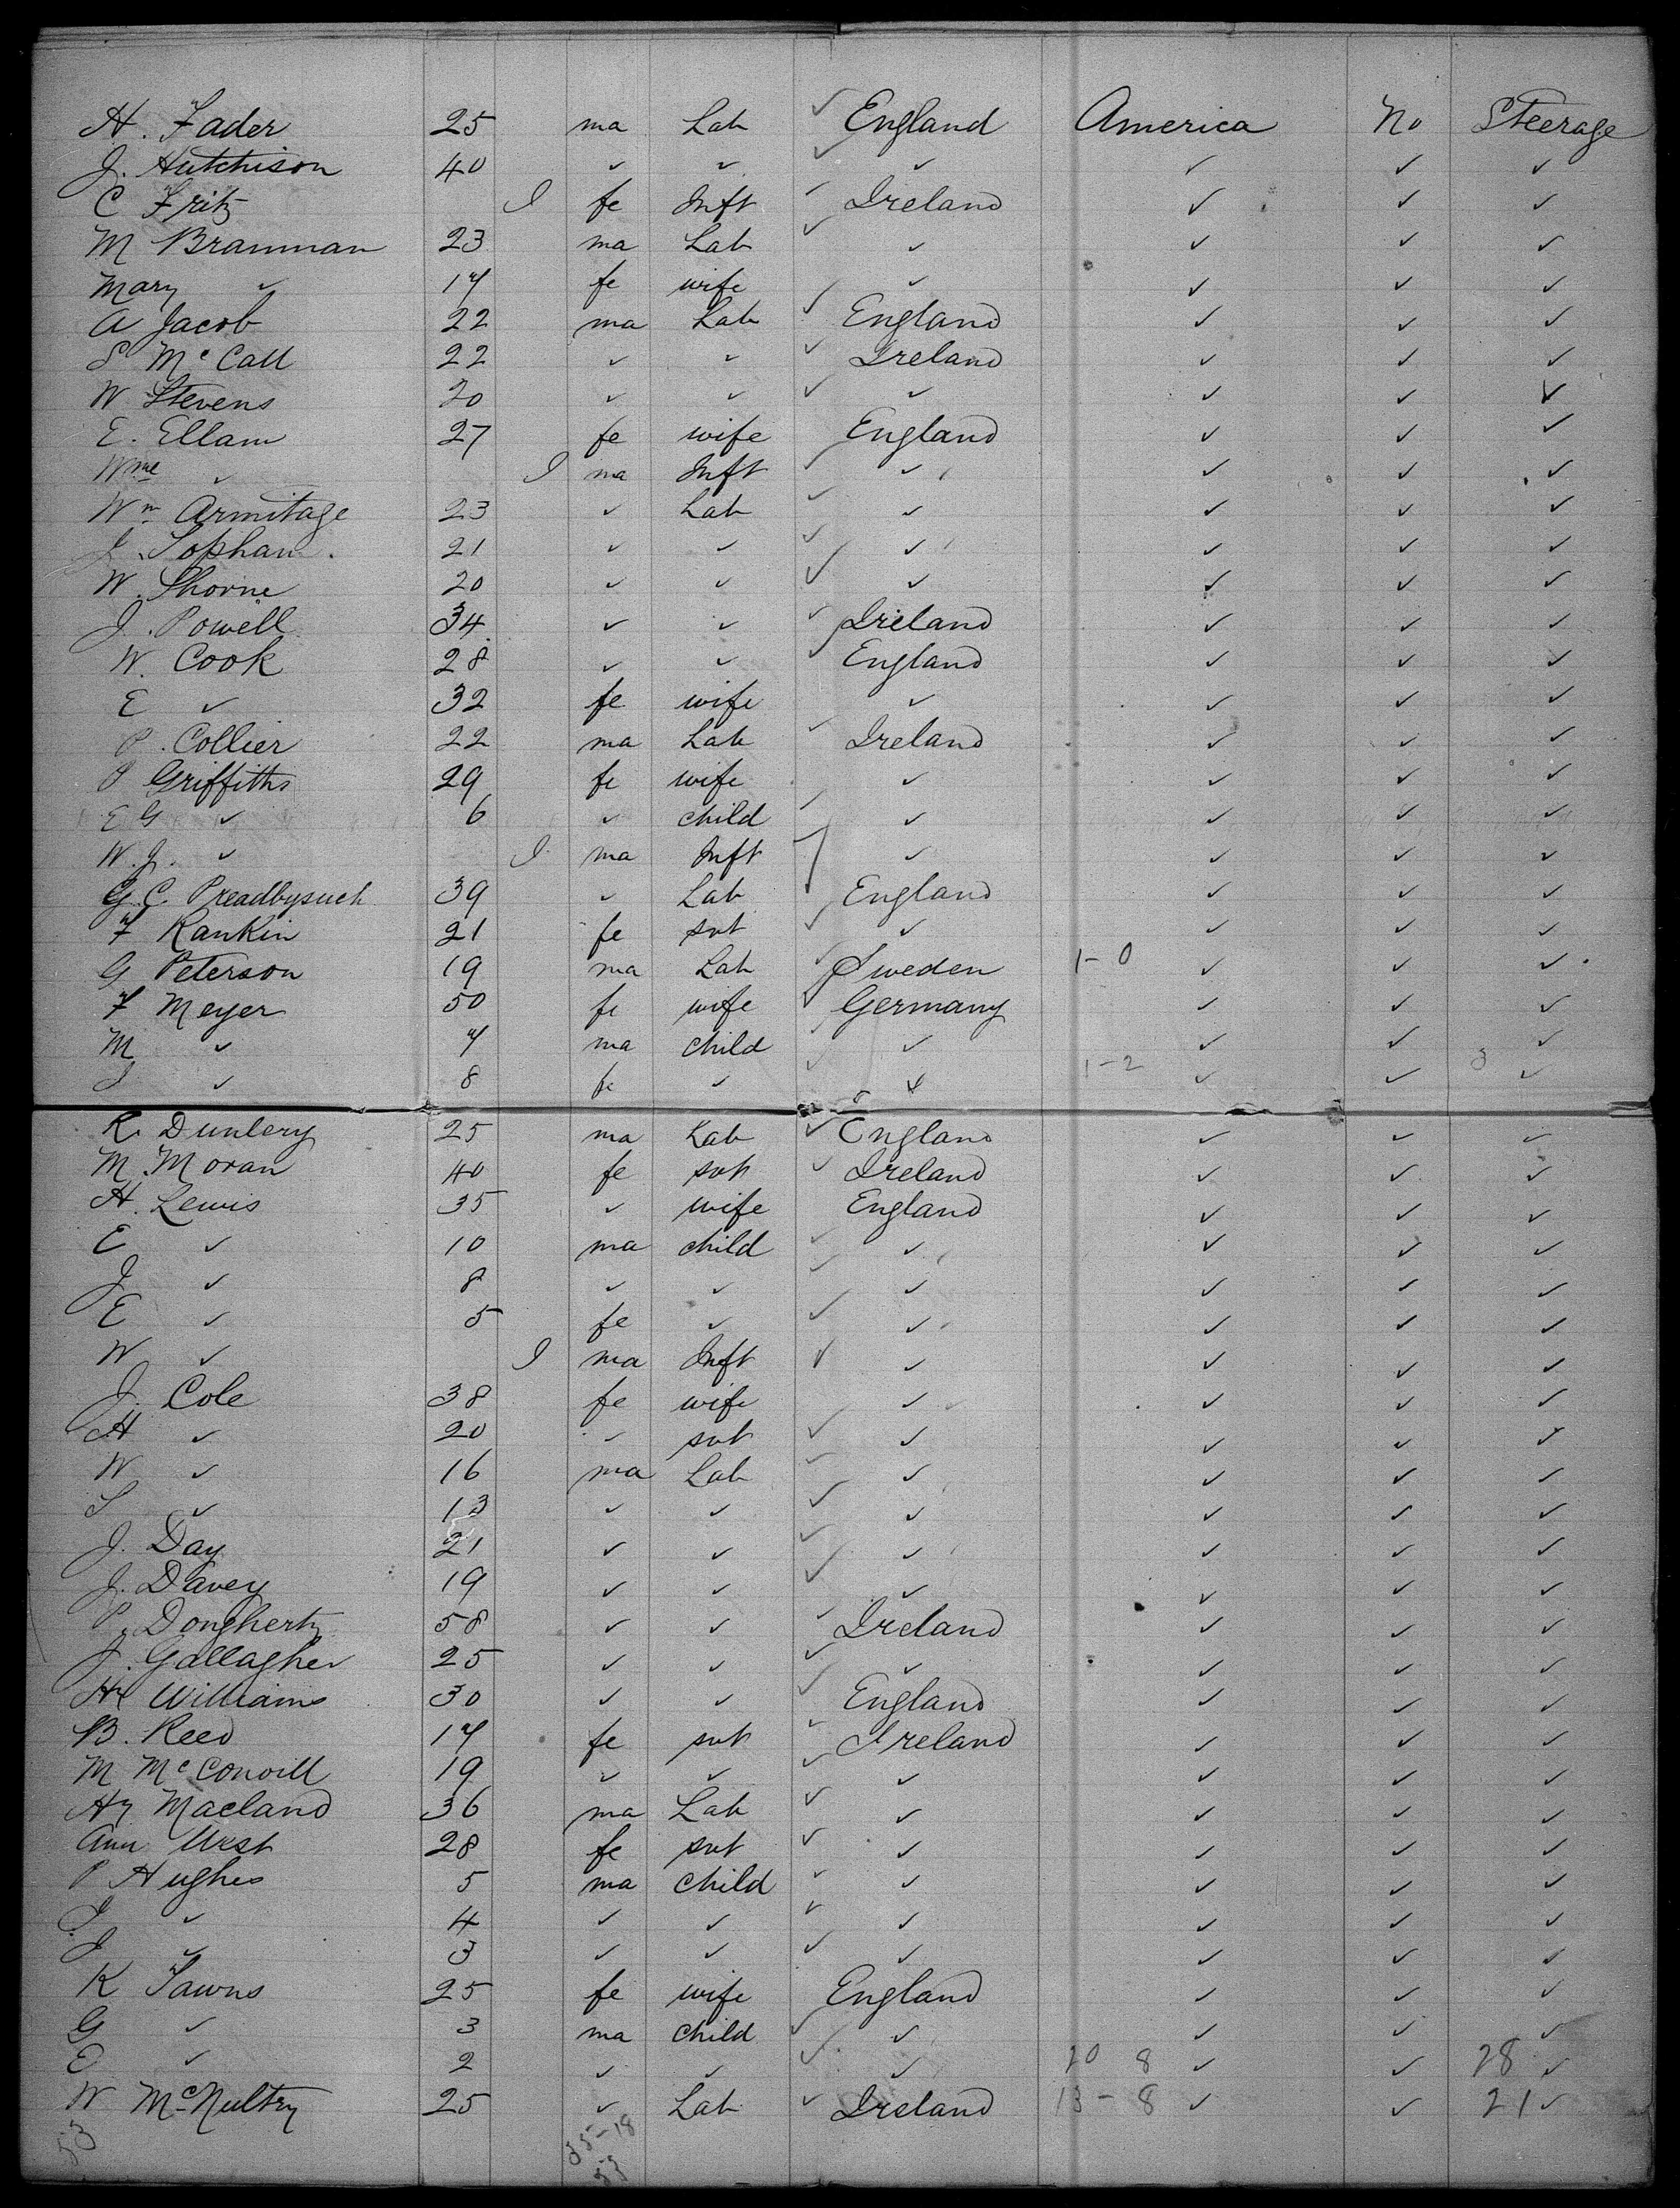 H. Fader 25 ma Lab ✓ England America No Steerage
J. Hutchison 40 ✓ ✓ ✓ ✓ ✓ ✓ ✓
C Fritz I fe Inft ✓ Ireland ✓ ✓ ✓
M Brannan 23 ma Lab ✓ ✓ ✓ ✓ ✓
Mary ✓ 17 fe wife ✓ ✓ ✓ ✓
A Jacob 22 ma Lab ✓ England ✓ ✓ ✓
S McCall 22 ✓ ✓ ✓ Ireland ✓ ✓ ✓
W Stevens 20 ✓ ✓ ✓ ✓ ✓ ✓ ✓
E. Ellam 27 fe wife England ✓ ✓ ✓
Wm ✓ I ma Inft ✓ ✓ ✓ ✓ ✓
Wm Armitage 23 ✓ Lab ✓ ✓ ✓ ✓ ✓
Sophan 21 ✓ ✓ ✓ ✓ ✓ ✓ ✓
W. Shorne 20 ✓ ✓ ✓ ✓ ✓ ✓ ✓
J. Powell 34 ✓ ✓ ✓ Ireland ✓ ✓ ✓
W. Cook 28 ✓ ✓ ✓ England ✓ ✓ ✓
E ✓ 32 fe wife ✓ ✓ ✓ ✓
P. Collier 22 ma Lab ✓ Ireland ✓ ✓ ✓
Griffiths 29 fe wife ✓ ✓ ✓ ✓
E G ✓ 6 ✓ child ✓ ✓ ✓ ✓ ✓
W. J. ✓ I ma Inft ✓ ✓ ✓ ✓
G. C. Preadbysuch 39 ✓ Lab England ✓ ✓ ✓
F Rankin 21 fe svt ✓ ✓ ✓ ✓ ✓
G Peterson 19 ma Lab ✓ Sweden 1-0 ✓ ✓ ✓
F Meyer 50 fe wife ✓ Germany ✓ ✓ ✓
M ✓ 7 ma child ✓ ✓ ✓ ✓ ✓
J ✓ 8 fe ✓ ✓ ✓ 1-2 ✓ ✓ 3 ✓
R. Dunlery 25 ma Lab ✓ England ✓ ✓ ✓
M. Moran 40 fe svt ✓ Ireland ✓ ✓ ✓
H. Lewis 35 ✓ wife England ✓ ✓ ✓
E ✓ 10 ma child ✓ ✓ ✓ ✓ ✓
J ✓ 8 ✓ ✓ ✓ ✓ ✓ ✓ ✓
E ✓ 5 fe ✓ ✓ ✓ ✓ ✓ ✓
W ✓ I ma Inft ✓ ✓ ✓ ✓ ✓
J. Cole 38 fe wife ✓ ✓ ✓ ✓
H ✓ 20 ✓ svt ✓ ✓ ✓ ✓ ✓
W ✓ 16 ma Lab ✓ ✓ ✓ ✓ ✓
S ✓ 13 ✓ ✓ ✓ ✓ ✓ ✓ ✓
J. Day 21 ✓ ✓ ✓ ✓ ✓ ✓ ✓
J. Davey 19 ✓ ✓ ✓ ✓ ✓ ✓ ✓
P. Dougherty 58 ✓ ✓ ✓ Ireland ✓ ✓ ✓
J. Gallagher 25 ✓ ✓ ✓ ✓ ✓ ✓ ✓
Williams 30 ✓ ✓ ✓ England ✓ ✓ ✓
B. Reed 17 fe svt ✓ Ireland ✓ ✓ ✓
M McConvill 19 ✓ ✓ ✓ ✓ ✓ ✓ ✓
Hy Macland 36 ma Lab ✓ ✓ ✓ ✓ ✓
Ann West 28 fe svt ✓ ✓ ✓ ✓ ✓
P Hughes 5 ma child ✓ ✓ ✓ ✓ ✓
J. ✓ 4 ✓ ✓ ✓ ✓ ✓ ✓ ✓
J ✓ 3 ✓ ✓ ✓ ✓ ✓ ✓ ✓
K Tawns 25 fe wife England ✓ ✓ ✓
G ✓ 3 ma child ✓ ✓ ✓ ✓ ✓
✓ 2 ✓ ✓ ✓ ✓ 20 8 ✓ ✓ 28 ✓
W McNultry 25 ✓ Lab ✓ Ireland 13-8 ✓ ✓ 21 ✓
53 35-18
53